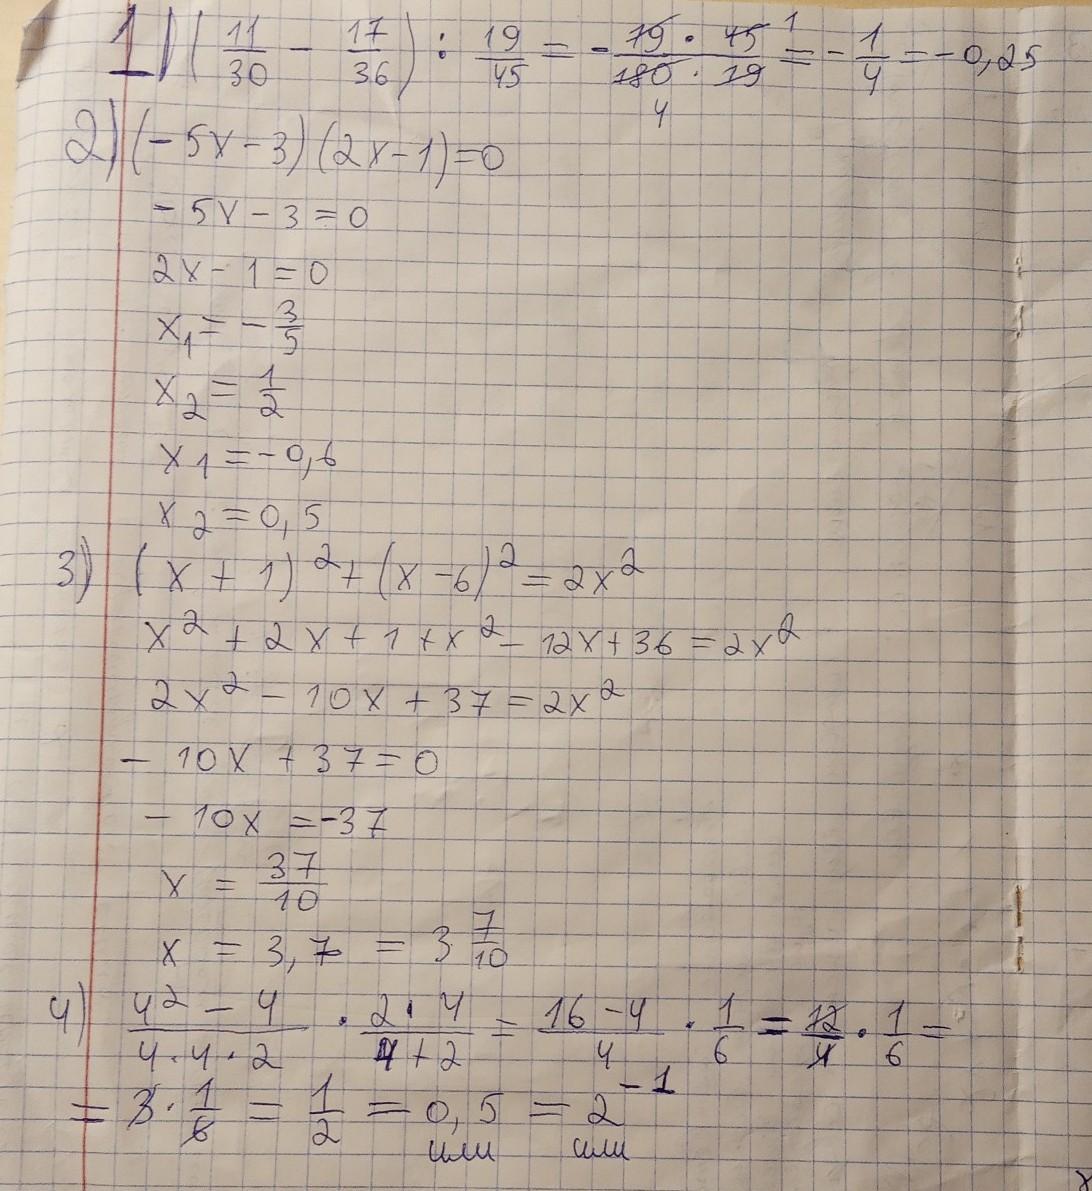 1) (11/30 - 17/36) : 19/45 = - 19 · 45 / 180 · 19 = - 1/4 = -0,25
1
4
2) (-5x-3)(2x-1)=0
-5x-3=0
2x-1=0
x₁=-3/5
x₂=1/2
x₁=-0,6
x₂=0,5
3) (x+1)²+(x-6)²=2x²
x²+2x+1+x²-12x+36=2x²
2x²-10x+37=2x²
-10x+37=0
-10x=-37
x=37/10
x=3,7=3 7/10
4) 4²-4 / 4·4·2 · 2·4 / 4+2 = 16-4 / 4 · 1/6 = 12/4 · 1/6 =
= 3 · 1/6 = 1/2 = 0,5 = 2⁻¹
или или